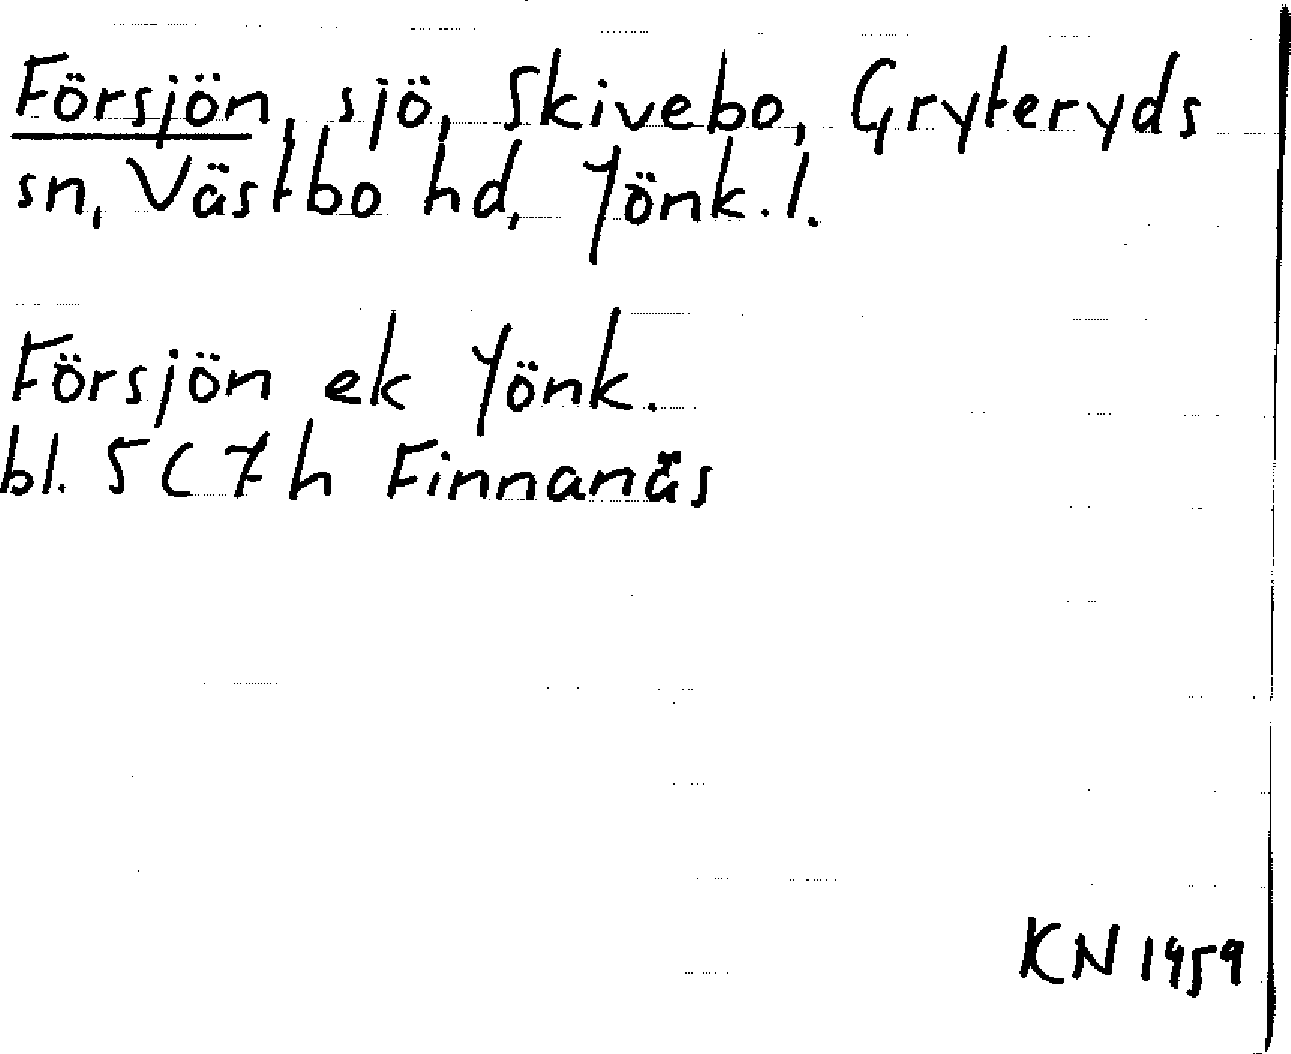 Försjön, sjö, Skivebo, Gryteryds
sn, Västbo hd, Jönk.l.
Försjön ek Jönk.
bl. 5C7h Finnanäs
KN 1959